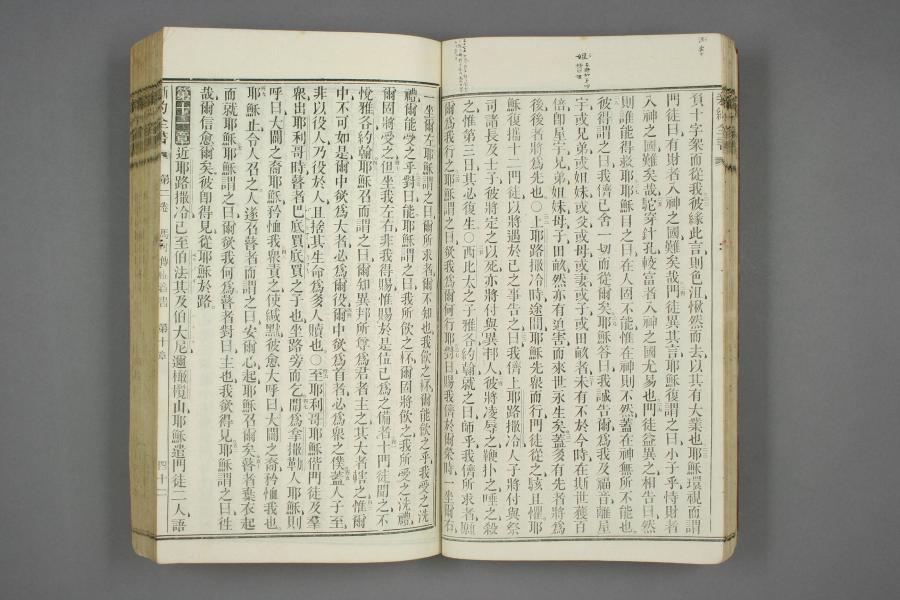 負十字架而從我彼緣此言則色沮愀然而去以其有大業也耶穌環視而謂
門徒曰有財者入神之國難矣哉門徒異其言耶穌復謂之曰小子乎恃財者
入神之國難矣哉駝穿針孔較富者入神之國尤易也門徒益異之相告曰然
則誰能得救耶耶穌目之曰在人固不能惟在神則不然蓋在神無所不能也
彼得謂之曰我儕已舍一切而從爾矣耶穌答曰我誠告爾爲我及福音離屋
宇或兄弟或姐妹或父或母或妻或子或田畝者未有不於今時在斯世獲百
倍卽屋宇兄弟姐妹母子田畝然亦有迫害而來世永生矣蓋多有先者將爲
後後者將爲先也○上耶路撒冷時途間耶穌先衆而行門徒從之駭且懼耶
穌復攜十二門徒以將遇於己之事告之曰我儕上耶路撒冷人子將付與祭
司諸長及士子彼將定之以死亦將付與異邦人彼將凌辱之鞭扑之唾之殺
之惟第三日其必復生○西比太之子雅各約翰就之曰師乎我儕所求者願
爾爲我行之耶穌謂之曰欲我爲爾何行耶對曰賜我儕於爾榮時一坐爾右
一坐爾左耶穌謂之曰爾所求者爾不知也我飲之杯爾能飲之乎我受之洗
禮爾能受之乎對曰能耶穌謂之曰我所飲之杯爾固將飲之我所受之洗禮
爾固將受之但坐我左右非我得賜惟賜於是位已爲之備者十門徒聞之不
悅雅各約翰耶穌召而謂之曰爾知異邦所尊爲君者主之其大者轄之惟爾
中不可如是爾中欲爲大者必爲爾役爾中欲爲首者必爲衆之僕蓋人子至
非以役人乃役於人且捨其生命爲多人贖也○至耶利哥耶穌偕門徒及羣
衆出耶利哥時瞽者巴底買底買之子也坐路旁而乞聞爲拿撒勒人耶穌則
呼曰大闢之裔耶穌矜恤我衆責之使緘默彼愈大呼曰大闢之裔矜恤我也
耶穌止令人召之人遂召瞽者而謂之曰安爾心起耶穌召爾矣瞽者棄衣起
而就耶穌耶穌謂之曰爾欲我何爲瞽者對曰主也我欲得見耶穌謂之曰往
哉爾信愈爾矣彼卽得見從耶穌於路
第十一章近耶路撒冷已至伯法其及伯大尼邇橄欖山耶穌遣門徒二人語
新約全書 第二卷 馬可傳福音書 第十章 四十二